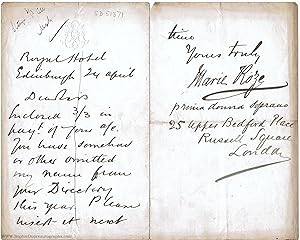 SD51371
Royal Hotel
Edinburgh 24 april
Dear Sirs
Inclosed 3/3 in
paymt of your a/c.
You have somehow
or other omitted
my name from
your Directory
this year Please
insert it next
time
Yours truly
Marie Roze
prima donna soprano
25 Upper Bedford Place
Russell Square
London